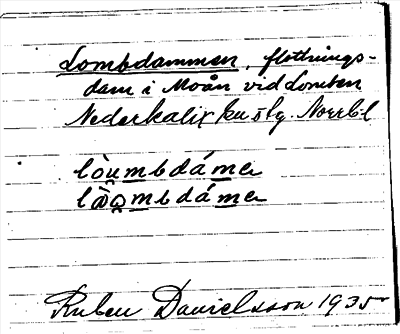 Lombdammen, flottnings-
dam i Moån vid Lomben
Nederkalix kustlg. Norrb. l
lòumbdámer
làombdámer
Ruben Danielsson 1935